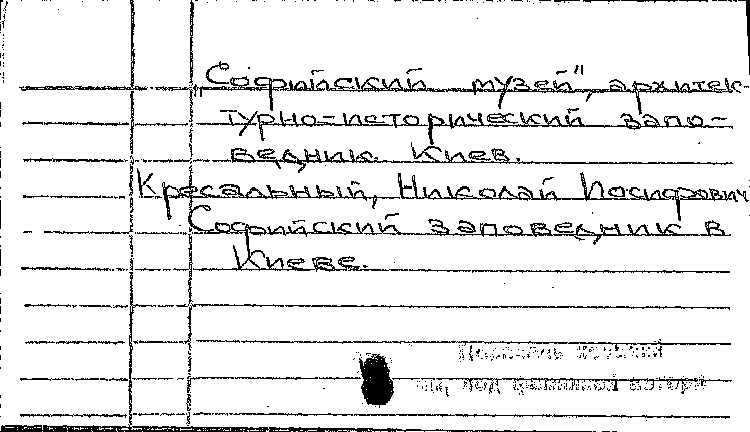 „Софийский музей", архитек-
турно-исторический запо-
ведник. Киев.
Кресальный, Николай Иосифович
Софийский заповедник в
Киеве.
под фамилией автора